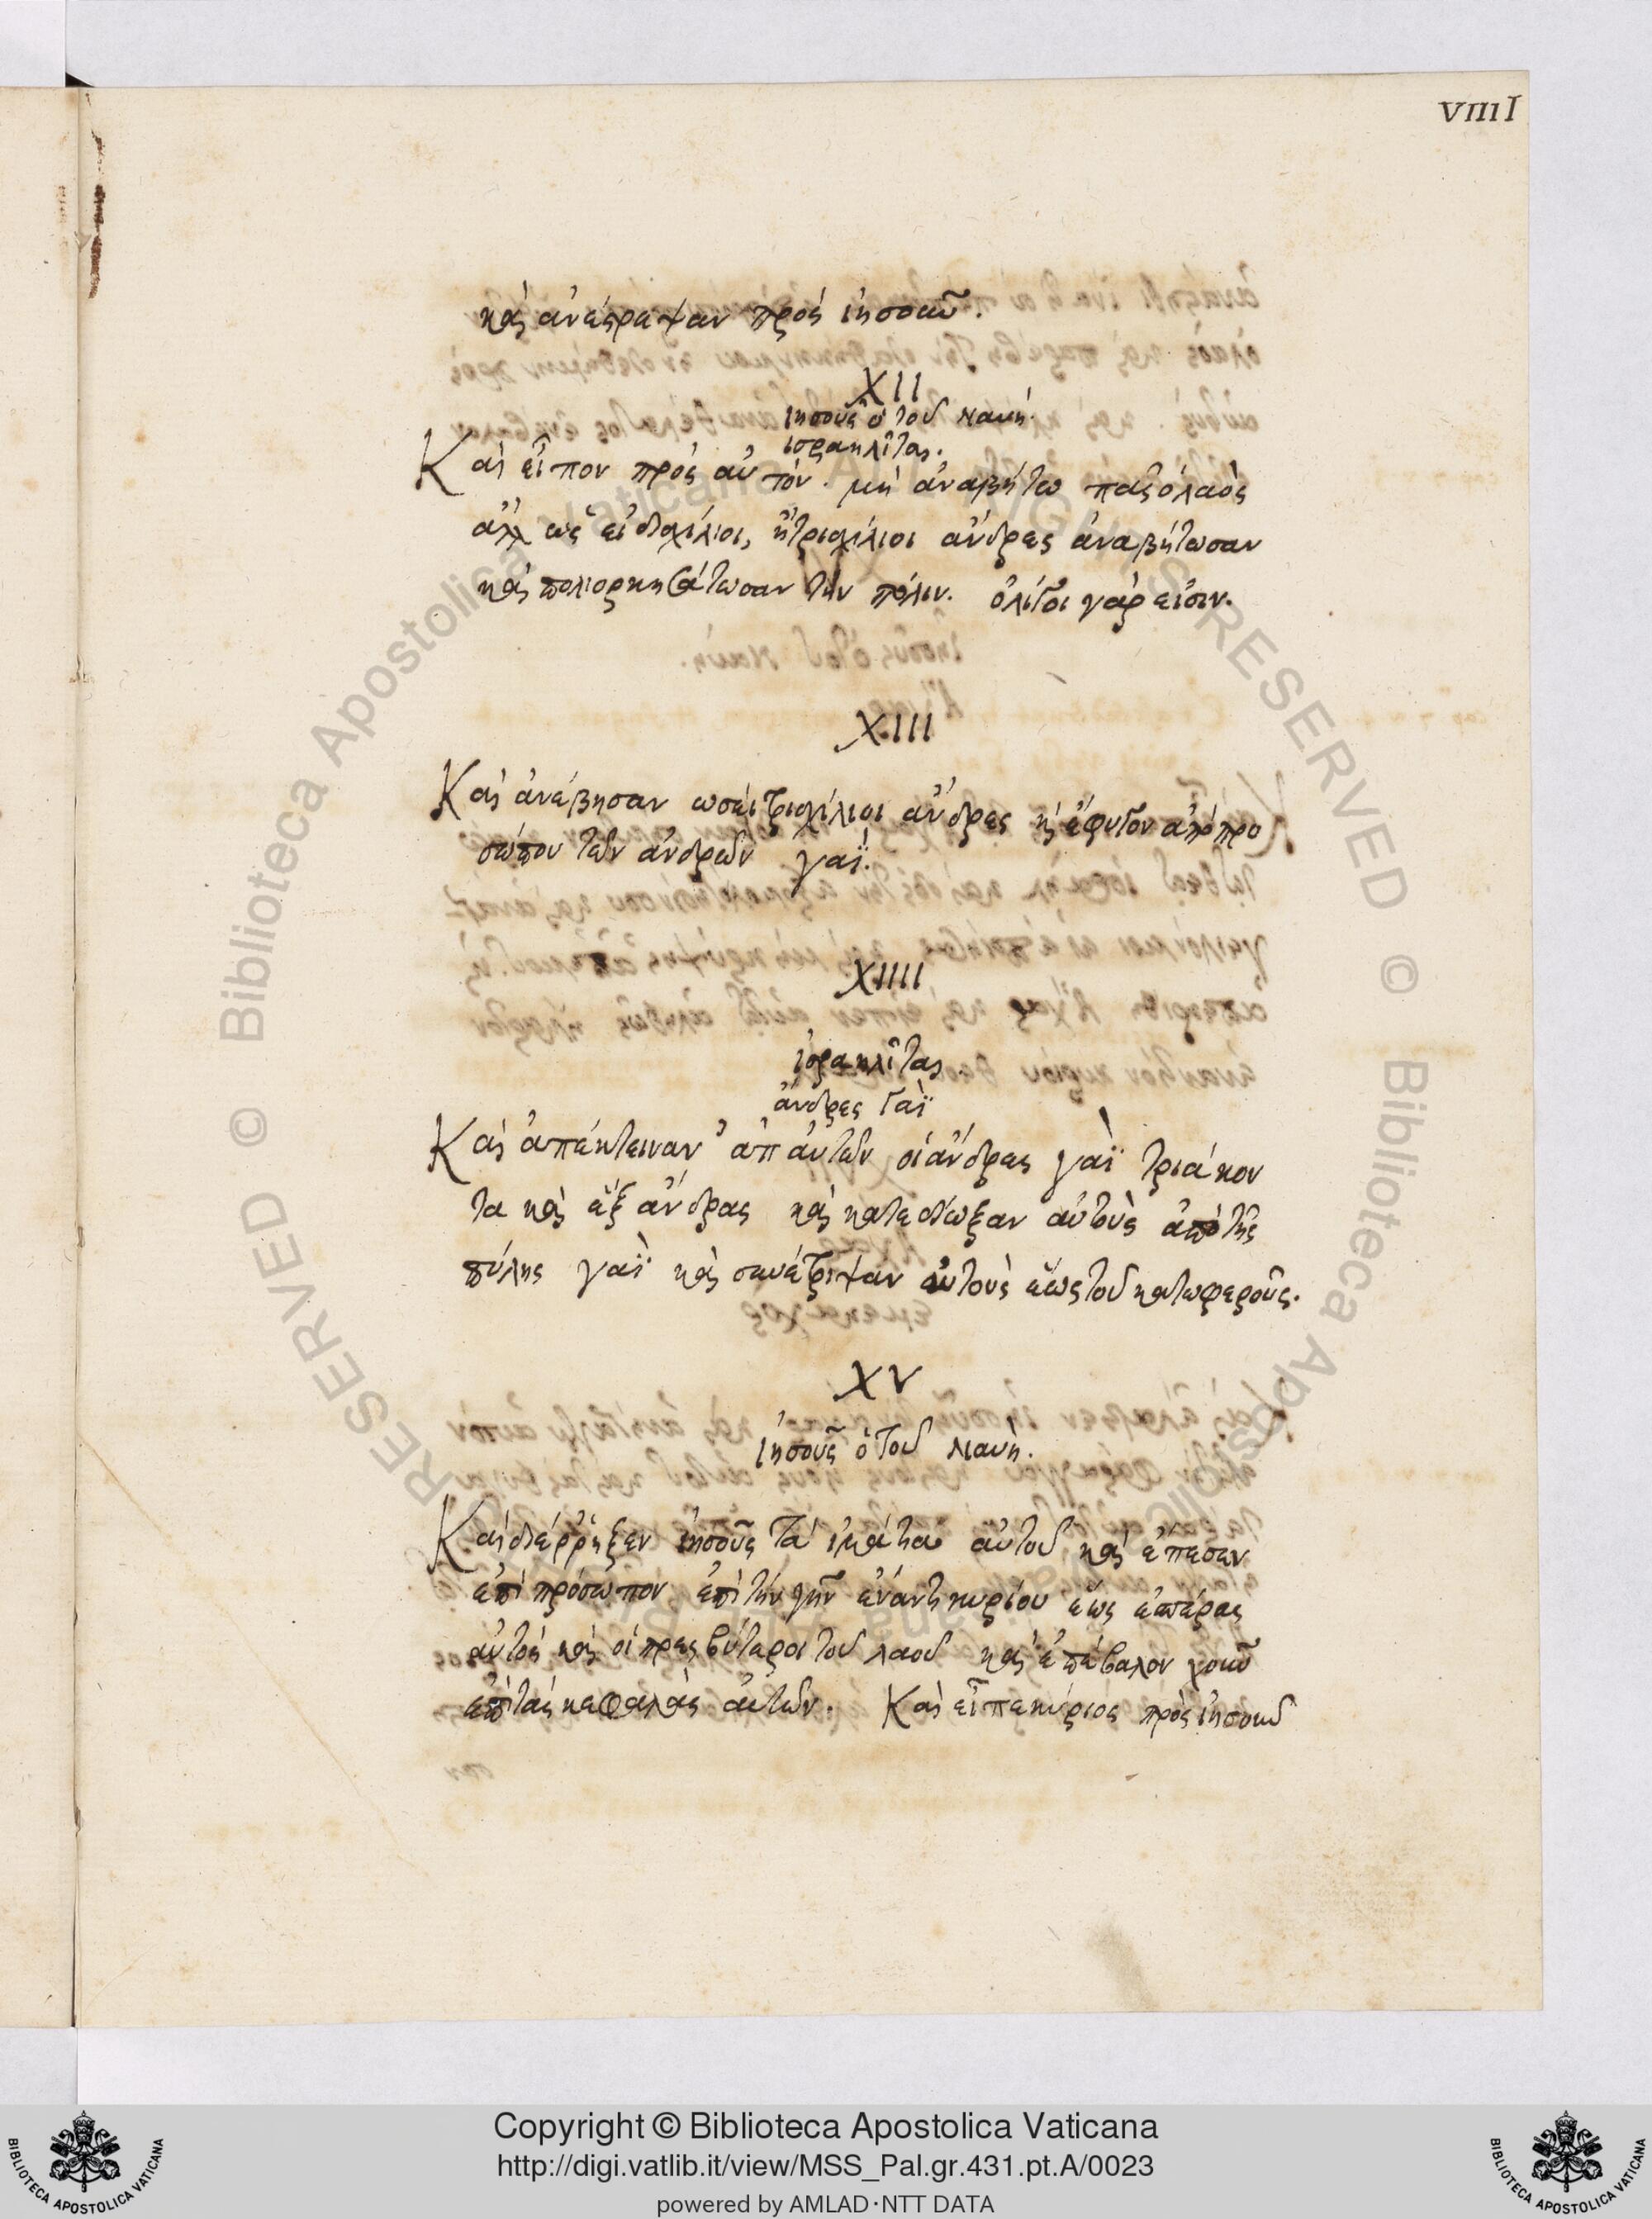 VIIII
καὶ ἀνέςρεψαν πρὸς ἰησοῦν.
XII
Ιησοῦς ὁ τοῦ Ναυή.
ισραηλῖται.
Καὶ εἶπον πρὸς αὐτόν. μὴ ἀναβήτω πᾶς ὁ λαὸς
ἀλλ ὡς εἰ δισχίλιοι, ἢ τρισχίλιοι ἄνδρες ἀναβήτωσαν
καὶ πολιορκησάτωσαν τὴν πόλιν. ὀλίγοι γάρ εἰσιν.
XIII
Καὶ ἀνέβησαν ωσεὶ τρισχίλιοι ἄνδρες κὶ ἔφυγον ἀπὸ προ
σώπου τῶν ἀνδρῶν γαΐ.
XIIII
ἰσραηλῖται
ἄνδρες Γαΐ
Καὶ ἀπέκτειναν ἀπ ἀυτῶν οἱ ἄνδρες γαῒ τριάκον
τα καὶ ἓξ ἄνδρας καὶ κατεδίωξαν αὐτοὺς ἀπὸ τῆς
πύλης γαῒ καὶ συνέτριψαν αὐτοὺς ἕως τοῦ κατωφεροῦς.
XV
Ιησοῦς ὁ τοῦ Ναυὴ.
Καὶ διέρρηξεν ἰησοῦς τὰ ἱμάτια αὐτοῦ καὶ ἔπεσεν
ἐπὶ πρόσωπον ἐπὶ τὴν γῆν ἐνάντι κυρίου ἕως ἑσπέρας
αὐτὸς καὶ οἱ πρεσβύτεροι τοῦ λαοῦ καὶ ἐπέβαλον χοῦν
ἐπὶ τὰς κεφαλὰς ἀυτῶν. Καὶ εἶπε κύριος πρὸς ἰησοῦν
© Biblioteca Apostolica Vaticana ALL RIGHTS RESERVED
© Biblioteca Apostolica Vaticana ALL RIGHTS RESERVED
BIBLIOTECA APOSTOLICA VATICANA
Copyright © Biblioteca Apostolica Vaticana
http://digi.vatlib.it/view/MSS_Pal.gr.431.pt.A/0023
powered by AMLAD·NTT DATA
BIBLIOTECA APOSTOLICA VATICANA